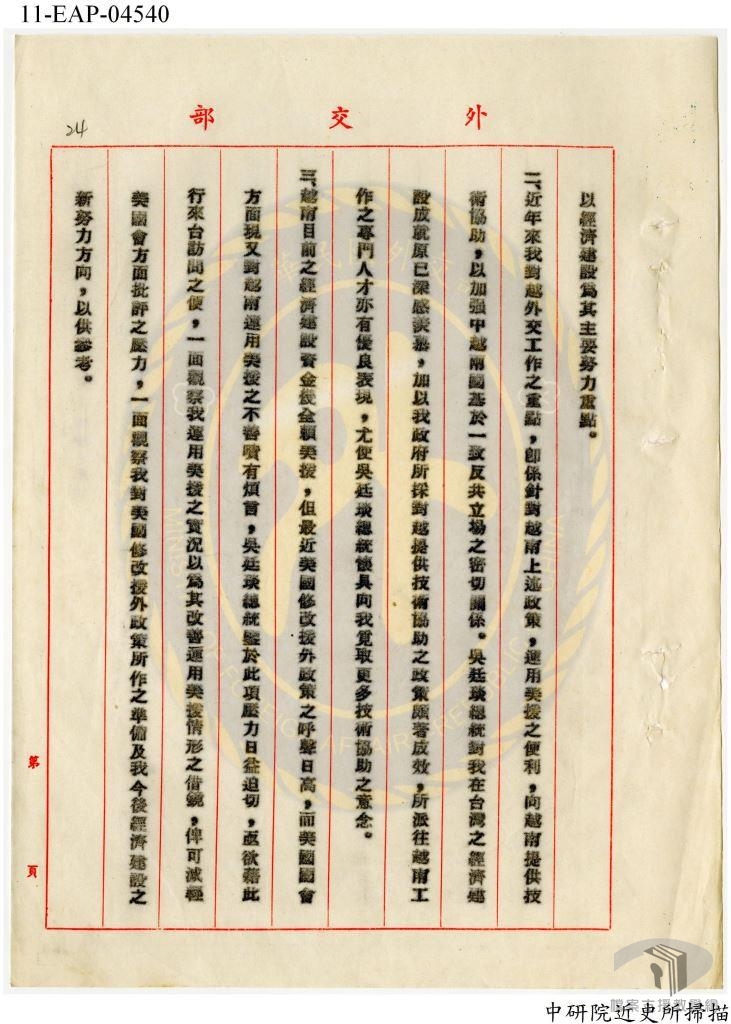 11-EAP-04540
外交部
24
以經濟建設爲其主要努力重點。
二、近年來我對越外交工作之重點，卽係針對越南上述政策，運用美援之便利，向越南提供技
術協助，以加强中越兩國基於一致反共立場之密切關係。吳廷琰總統對我在台灣之經濟建
設成就原已深感羨慕，加以我政府所採對越提供技術協助之政策頗著成效，所派往越南工
作之專門人才亦有優良表現，尤使吳廷琰總統懷具向我覓取更多技術協助之意念。
三、越南目前之經濟建設資金幾全賴美援，但最近美國修改援外政策之呼聲日高，而美國國會
方面現又對越南運用美援之不善嘖有煩言，吳廷琰總統鑒於此項壓力日益迫切，亟欲藉此
行來台訪問之便，一面觀察我運用美援之實況以爲其改善運用美援情形之借鏡，俾可減輕
美國會方面批評之壓力，一面觀察我對美國修改援外政策所作之準備及我今後經濟建設之
新努力方向，以供參考。
第　頁
MINISTRY OF FOREIGN AFFAIRS REPUBLIC CHINA
中研院近史所掃描